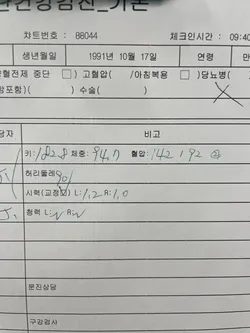 반건강검진_기본
챠트번호 : 88044 체크인시간 : 09:40
생년월일 1991년 10월 17일 연령 만
혈전제 중단 □) 고혈압( /아침복용 □) 당뇨병(
함포함)( ) 수술( )
당자 비고
키: 182.8 체중: 94.7 혈압: 142 / 92
허리둘레 90
시력(교정) L: 1.2 R: 1.0
청력 L: N R: N
문진상담
구강검사